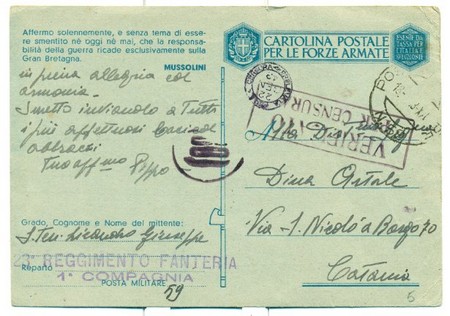 Affermo solennemente, e senza tema di esse-
re smentito né oggi né mai, che la responsa-
bilità della guerra ricade esclusivamente sulla
Gran Bretagna.
MUSSOLINI
in piena allegria ed
armonia.
Smetto inviando a Tutti
i più affettuosi baci ed
abbracci
Tuo aff/mo Pippo
Grado, Cognome e Nome del mittente:
S. Ten. Giuseppe
Reparto
23° REGGIMENTO FANTERIA
1ª COMPAGNIA
POSTA MILITARE 59
CARTOLINA POSTALE
PER LE FORZE ARMATE
ESENTE DA
TASSA PER
L'ITALIA E
VERIFICATO
CENSURA
Alla
Dina
Via S. Nicolò a Borgo 70
Catania
5